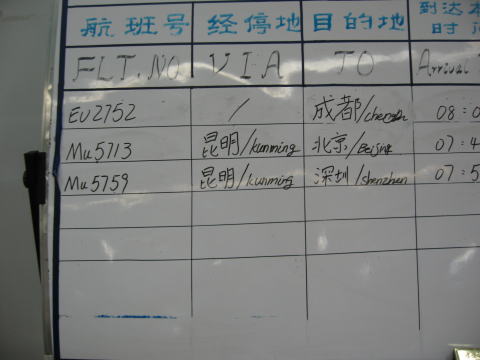 航班号 经停地 目的地 到达本
时间
FLT.NO VIA TO Arrival
EU2752 / 成都/chengdu 08:0
Mu5713 昆明/kunming 北京/Beijing 07:4
Mu5759 昆明/kunming 深圳/shenzhen 07:5